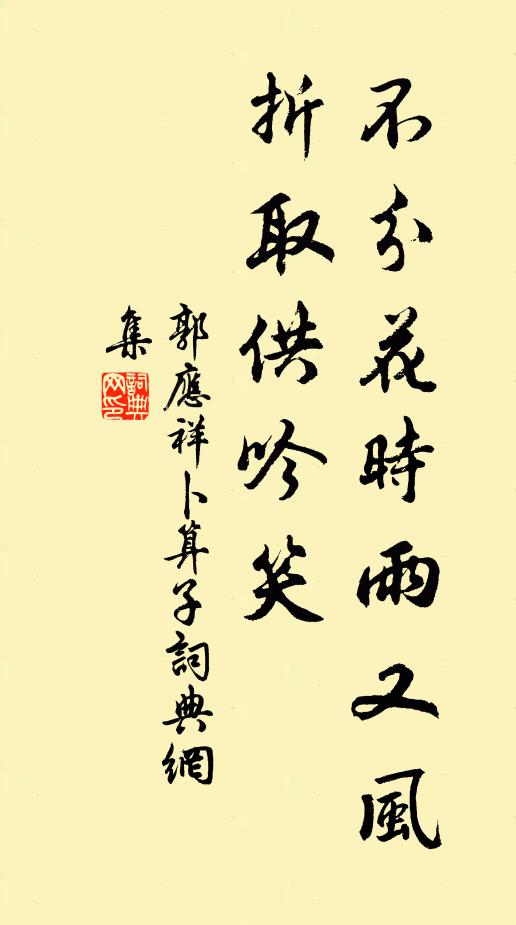 不分花時雨又風
折取供吟笑
郭應祥卜算子詞典網
集
詞典
网印